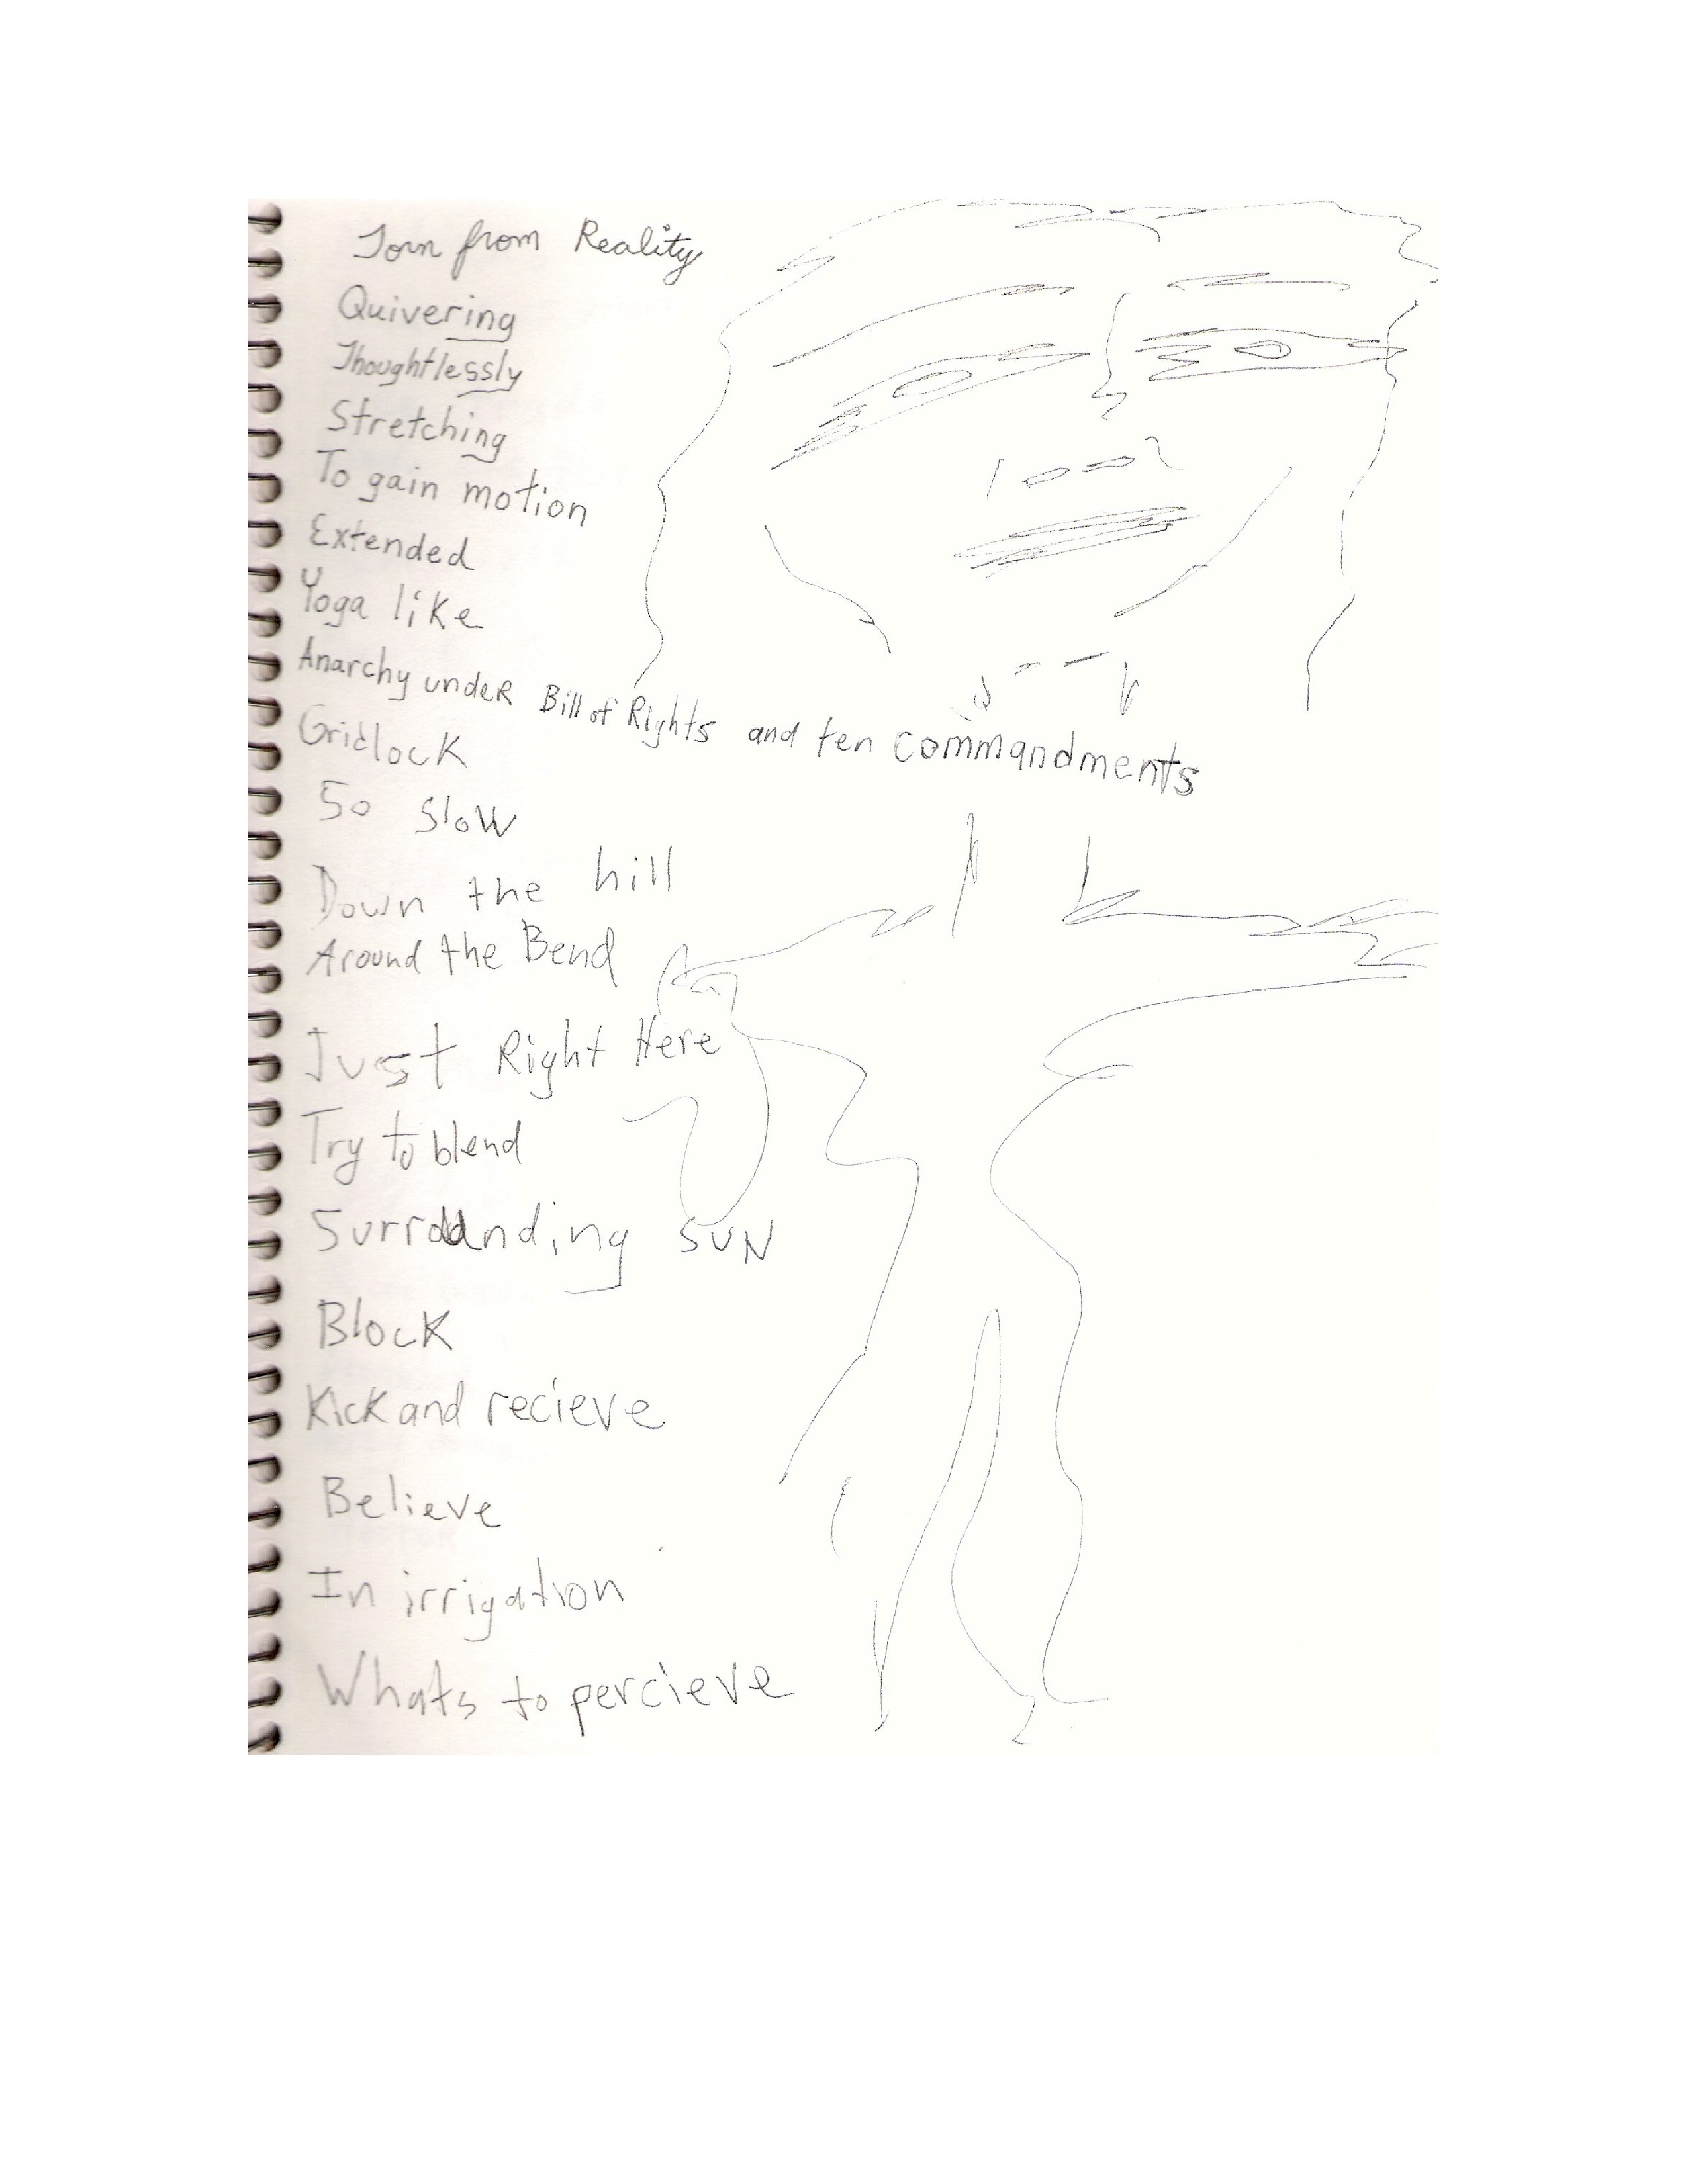 Torn from Reality
Quivering
Thoughtlessly
Stretching
To gain motion
Extended
Yoga like
Anarchy under Bill of Rights and ten commandments
Gridlock
So slow
Down the hill
Around the Bend
Just Right Here
Try to blend
Surrounding SUN
Block
Kick and recieve
Believe
In irrigation
Whats to percieve